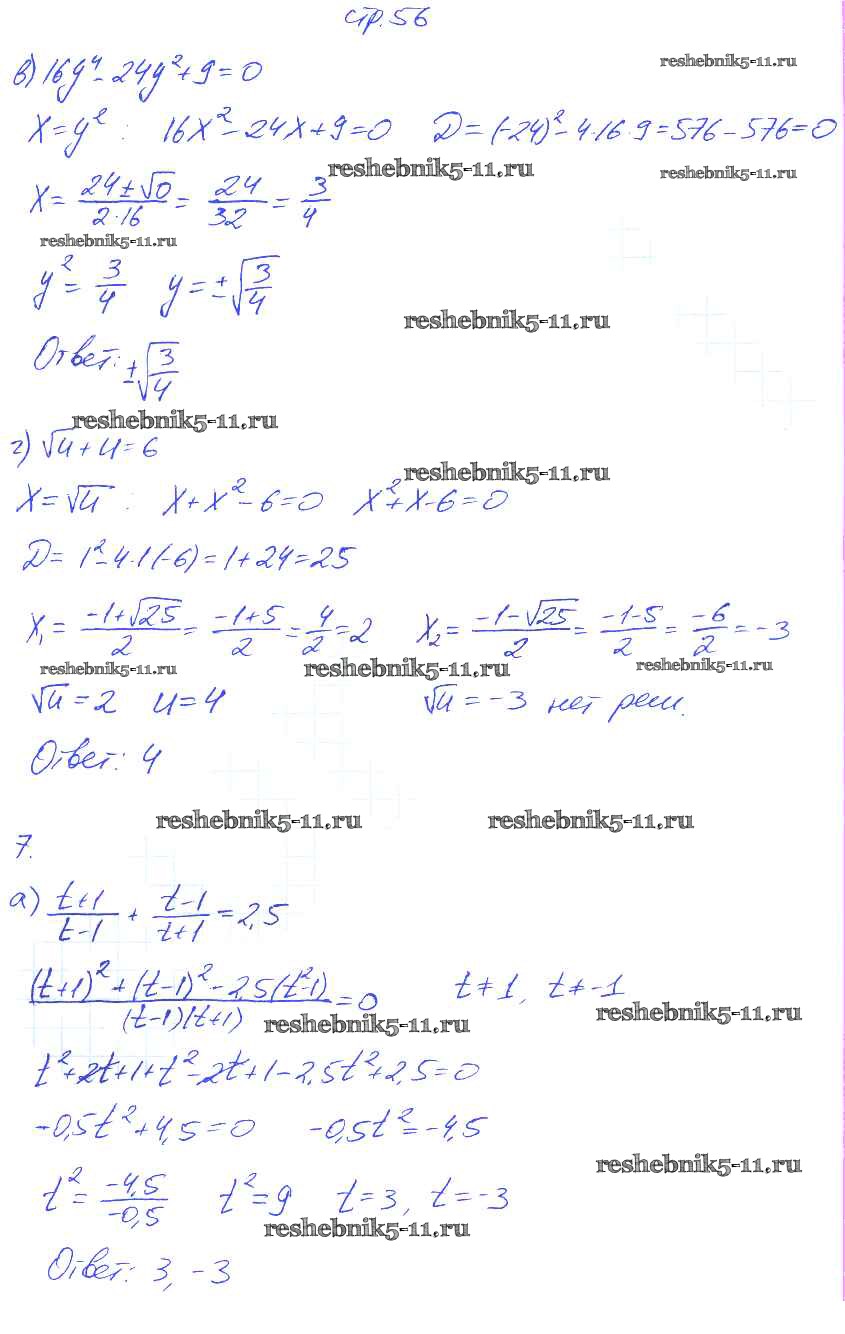 стр. 56
в) 16y⁴ - 24y² + 9 = 0
reshebnik5-11.ru
x = y² : 16x² - 24x + 9 = 0 D = (-24)² - 4·16·9 = 576 - 576 = 0
reshebnik5-11.ru reshebnik5-11.ru
x = (24 ± √0)/(2·16) = 24/32 = 3/4
reshebnik5-11.ru
y² = 3/4 y = ±√(3/4)
reshebnik5-11.ru
Ответ: ±√(3/4)
reshebnik5-11.ru
г) √u + u = 6
reshebnik5-11.ru
x = √u : x + x² - 6 = 0 x² + x - 6 = 0
D = 1² - 4·1(-6) = 1 + 24 = 25
x₁ = (-1+√25)/2 = (-1+5)/2 = 4/2 = 2 x₂ = (-1-√25)/2 = (-1-5)/2 = -6/2 = -3
reshebnik5-11.ru reshebnik5-11.ru reshebnik5-11.ru
√u = 2 u = 4 √u = -3 нет реш.
Ответ: 4
reshebnik5-11.ru reshebnik5-11.ru
7.
а) (t+1)/(t-1) + (t-1)/(t+1) = 2,5
((t+1)² + (t-1)² - 2,5(t²-1))/((t-1)(t+1)) = 0 t ≠ 1, t ≠ -1
reshebnik5-11.ru reshebnik5-11.ru
t² + 2t + 1 + t² - 2t + 1 - 2,5t² + 2,5 = 0
-0,5t² + 4,5 = 0 -0,5t² = -4,5
reshebnik5-11.ru
t² = -4,5/-0,5 t² = 9 t = 3, t = -3
reshebnik5-11.ru
Ответ: 3, -3